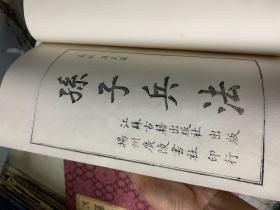 孫子兵法
江蘇古籍出版社 出版
揚州廣陵書社 印行